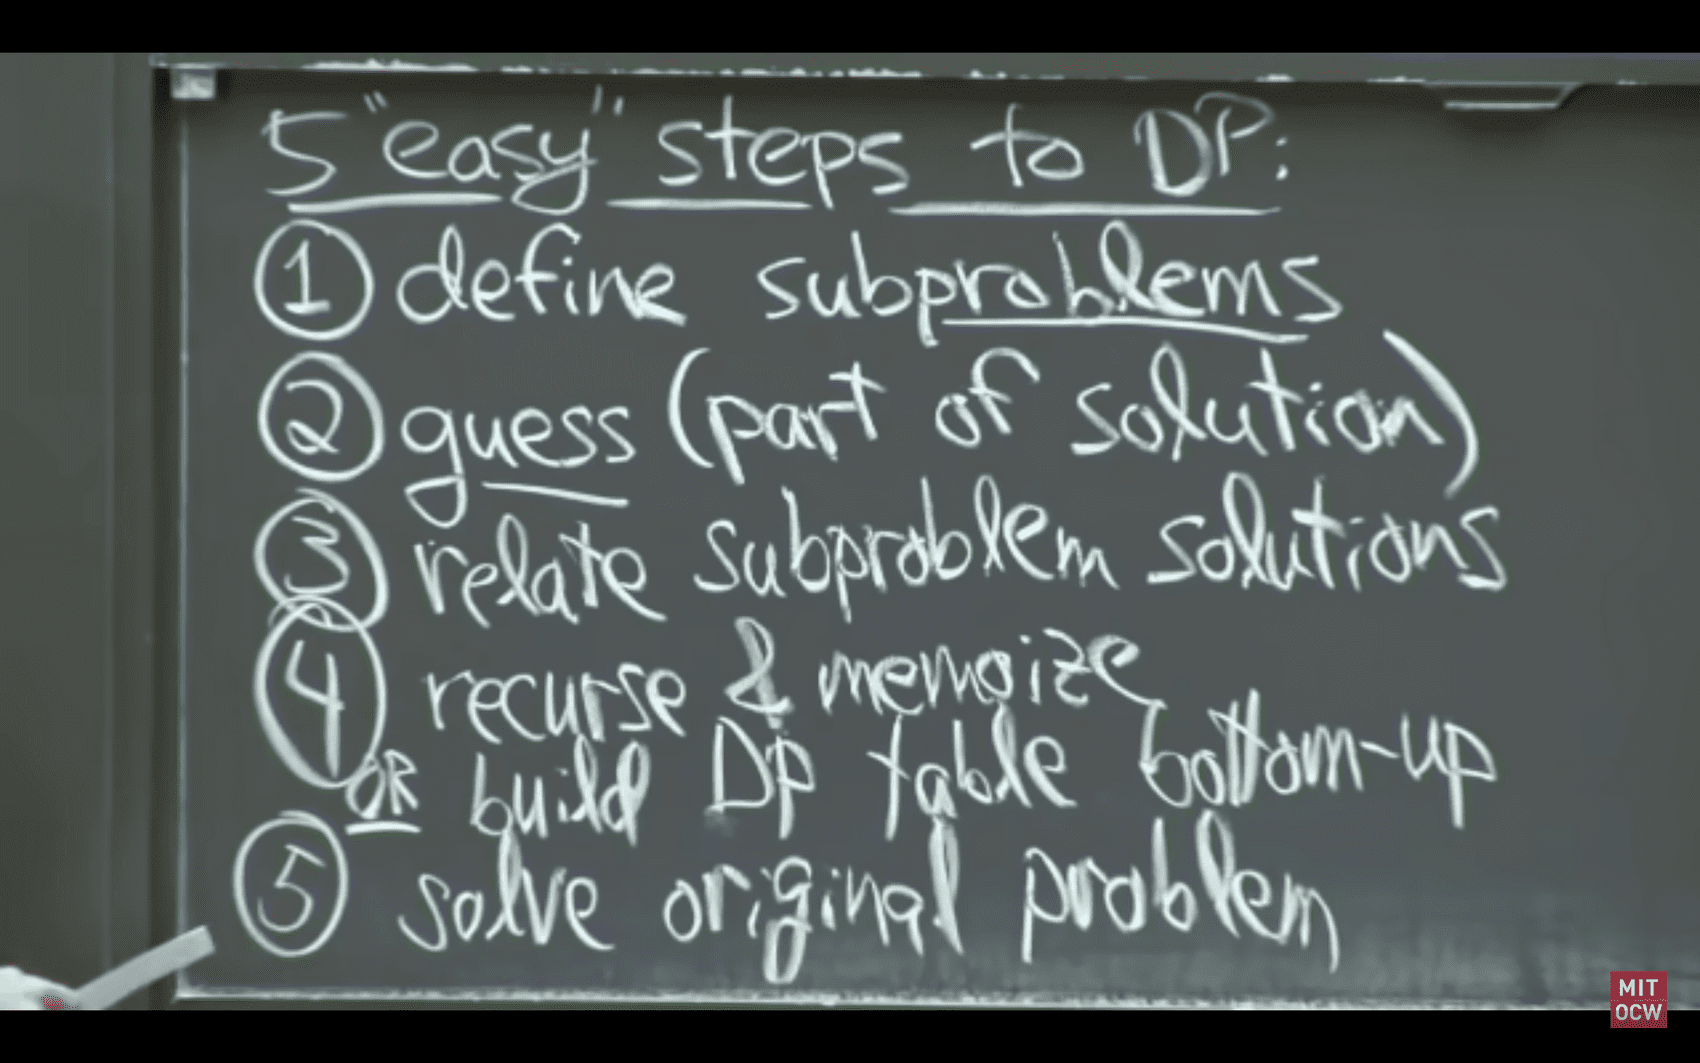 5 "easy" steps to DP:
① define subproblems
② guess (part of solution)
③ relate subproblem solutions
④ recurse & memoize
OR build DP table bottom-up
⑤ solve original problem
MIT
OCW